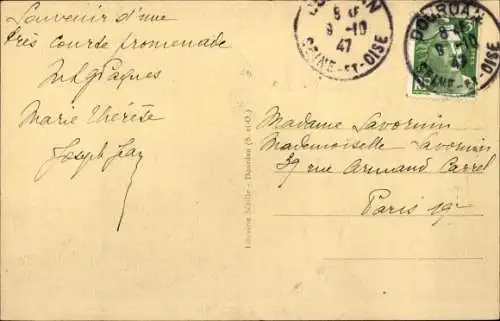 Souvenir d'une
très courte promenade
Marie Thérèse
Joseph Jean
DOURDAN
8 H
8-10
47
SEINE-ET-OISE
DOURDAN
8 H
8-10
47
SEINE-ET-OISE
Librairie - Dourdan (S.-et-O.)
Madame Savornin
Mademoiselle Savornin
39 rue Armand Carrel
Paris 19e